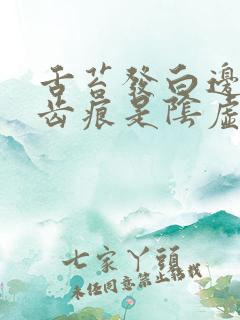 舌苔發白邊
齿痕是陰虛
七家丫頭
未经同意禁止转载